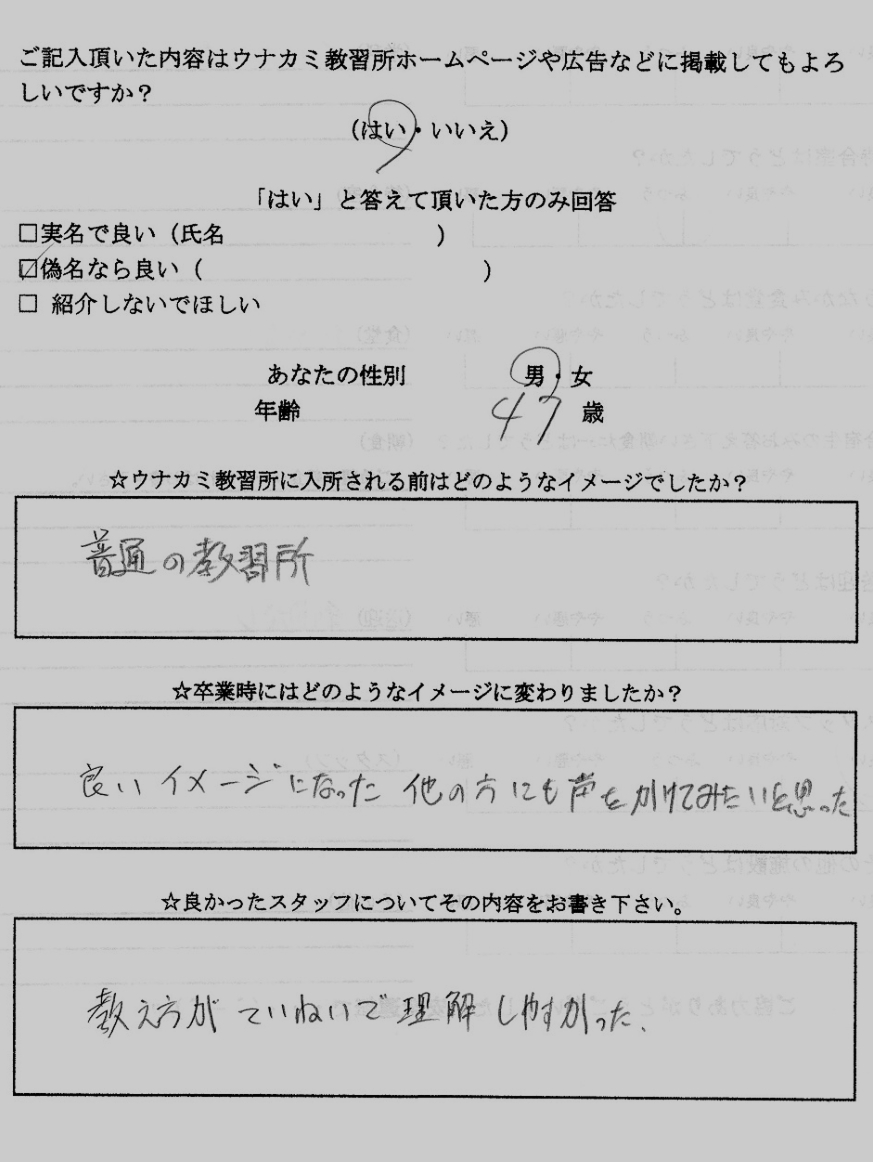 ご記入頂いた内容はウナカミ教習所ホームページや広告などに掲載してもよろ
しいですか？
（はい・いいえ）
「はい」と答えて頂いた方のみ回答
□実名で良い（氏名　　　　　　　　　）
☑偽名なら良い（　　　　　　　　　　　　）
□ 紹介しないでほしい
あなたの性別　　　　　男・女
年齢　　　　　　　　47 歳
☆ウナカミ教習所に入所される前はどのようなイメージでしたか？
普通の教習所
☆卒業時にはどのようなイメージに変わりましたか？
良いイメージになった 他の方にも声をかけてみたいと思った
☆良かったスタッフについてその内容をお書き下さい。
教え方が ていねいで理解しやすかった、